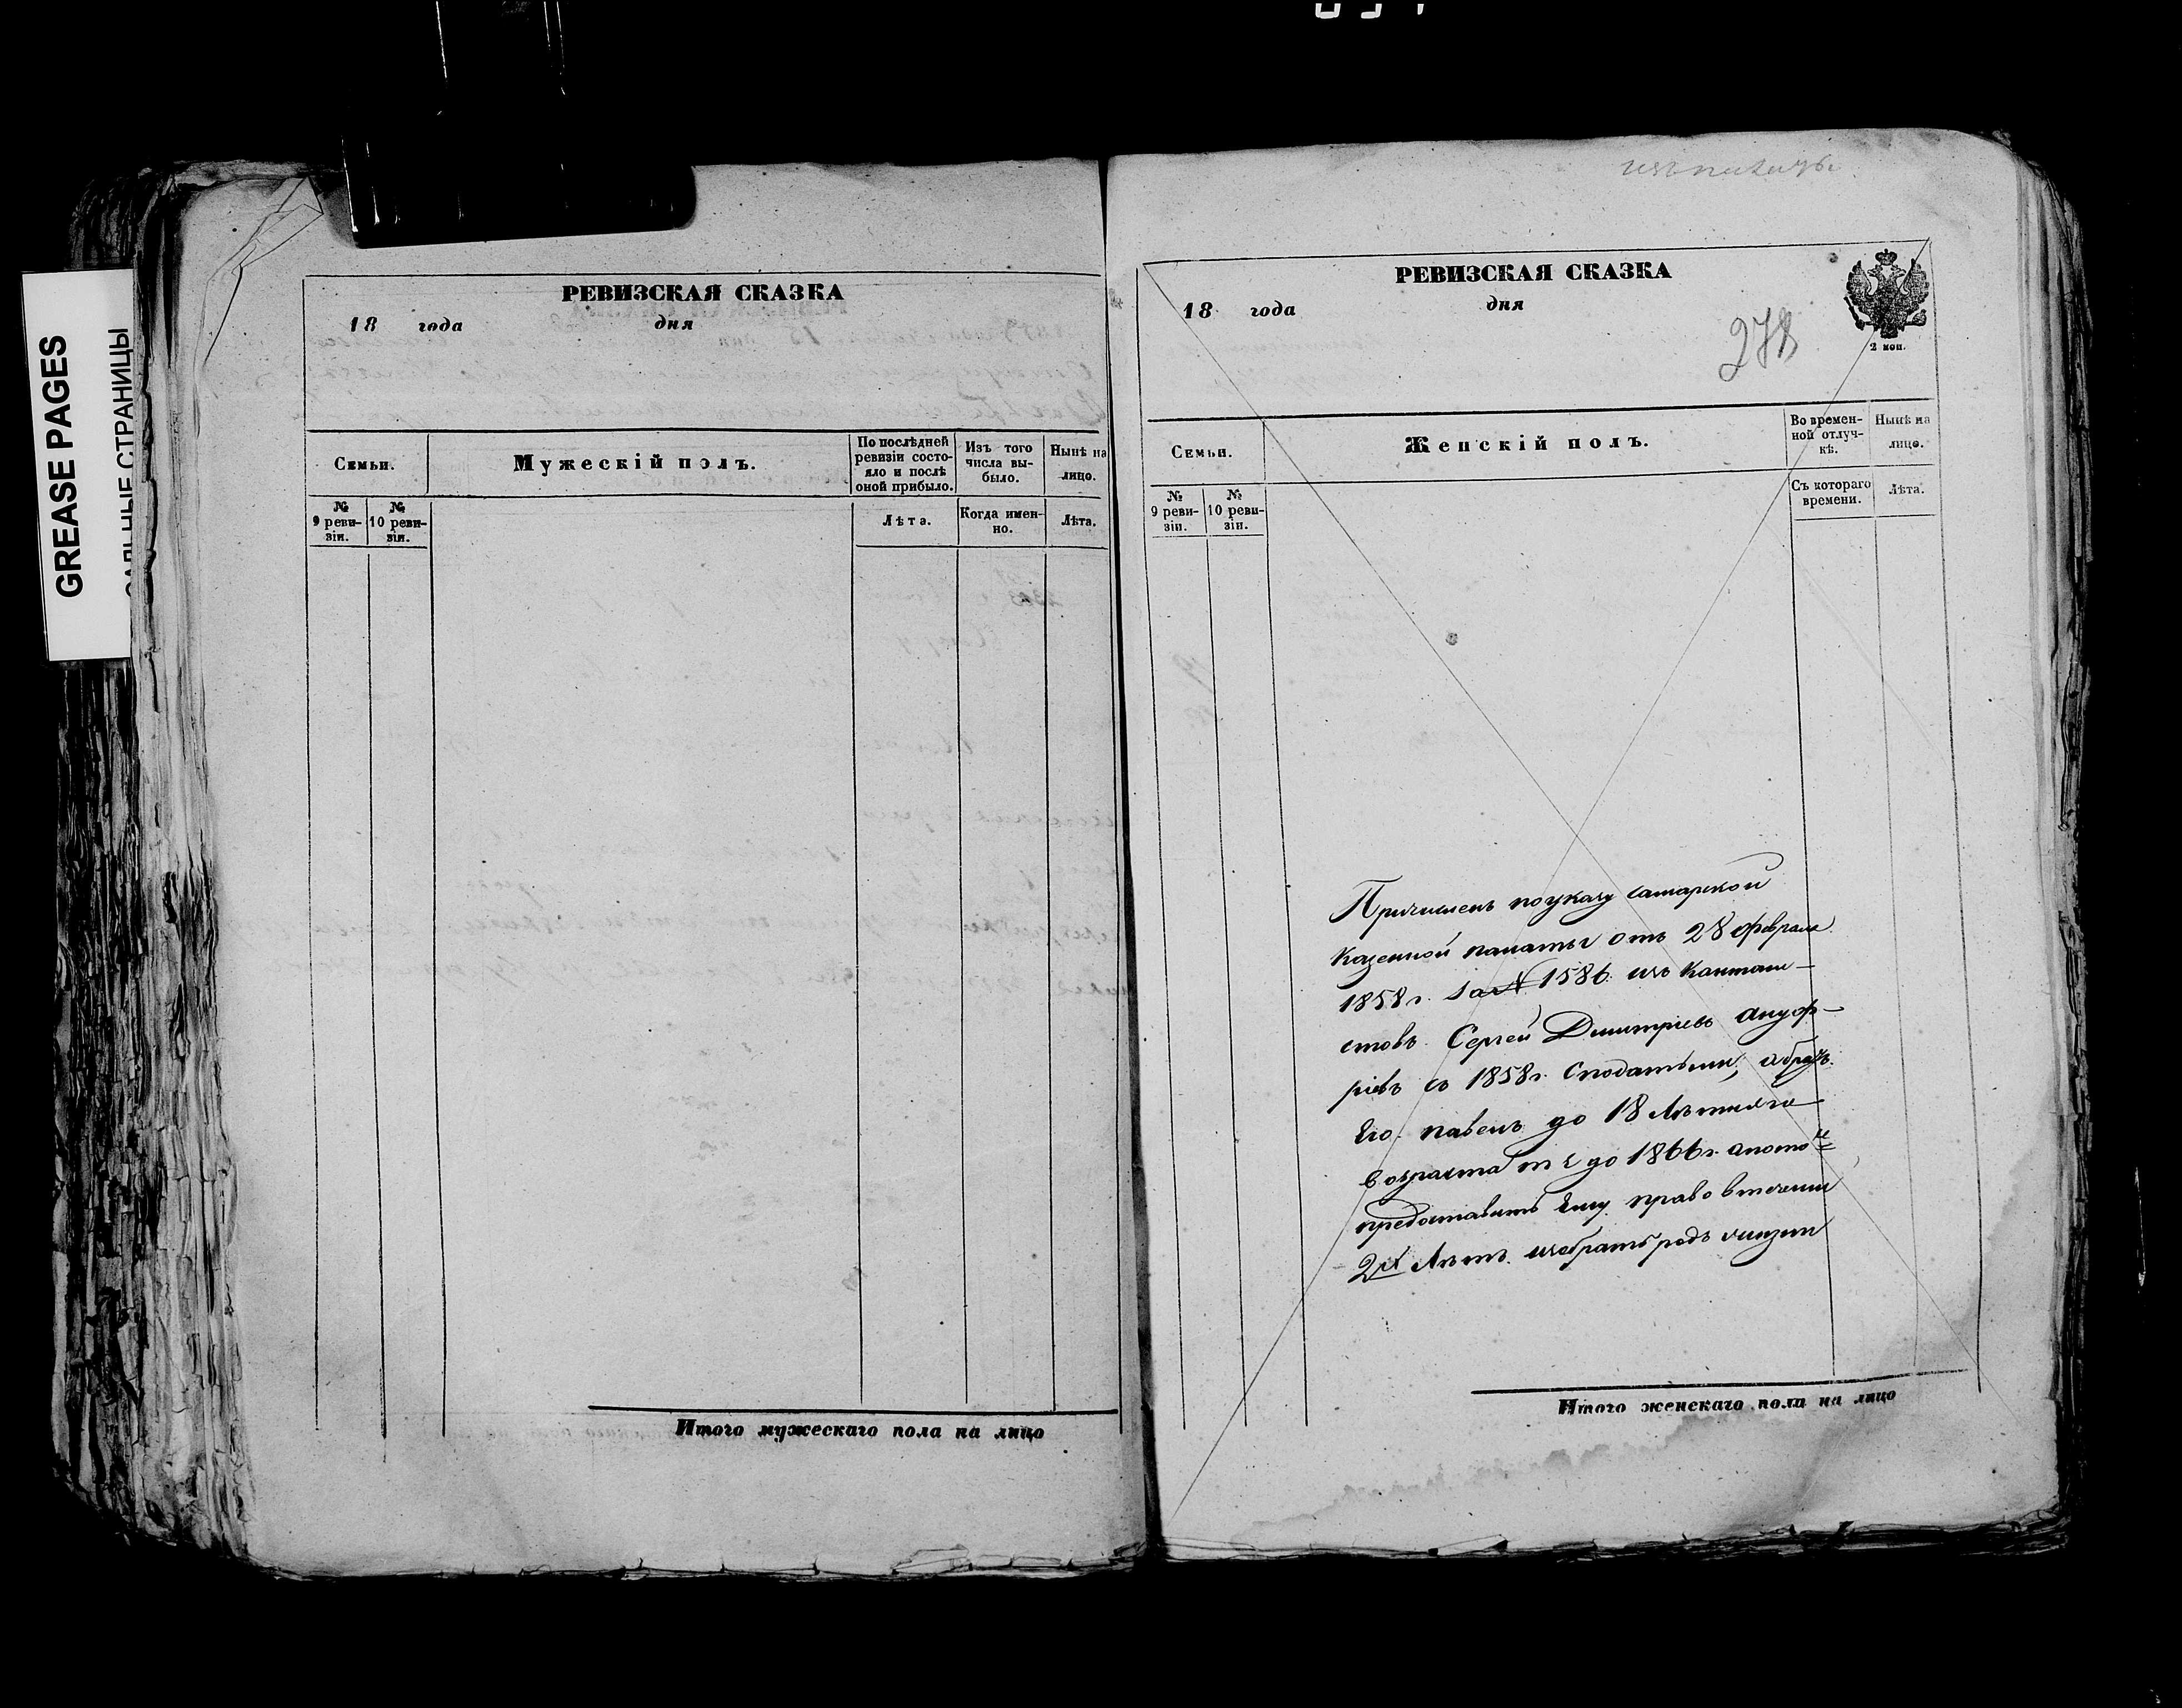 GREASE PAGES
САЛЬНЫЕ СТРАНИЦЫ
РЕВИЗСКАЯ СКАЗКА
18 года дня
Семьи.
Мужескій полъ.
По послѣдней ревизіи состо-
яло и послѣ оной прибыло.
Изъ того числа вы-
было.
Нынѣ на лицо.
№ 9 реви-
зіи.
№ 10 реви-
зіи.
Лѣта.
Когда имен-
но.
Лѣта.
Итого мужескаго пола на лицо
РЕВИЗСКАЯ СКАЗКА
18 года дня
278
2 коп.
Семьи.
Женскій полъ.
Во времен-
ной отлуч-
кѣ.
Нынѣ на
лицо.
№ 9 реви-
зіи.
№ 10 реви-
зіи.
Съ котораго
времени.
Лѣта.
Причисленъ поуказу самарской
казенной палаты отъ 28 февраля
1858 г. за № 1586. изъ кантони-
стовъ Сергей Димитріевъ ануф-
ріевъ съ 1858 г. сподатьми,
Его до 18 Лѣтняго
возраста т е до 1866 г. апото
предоставить Ему право втечении
2х Лѣтъ избрать родъ жизни
Итого женскаго пола на лицо